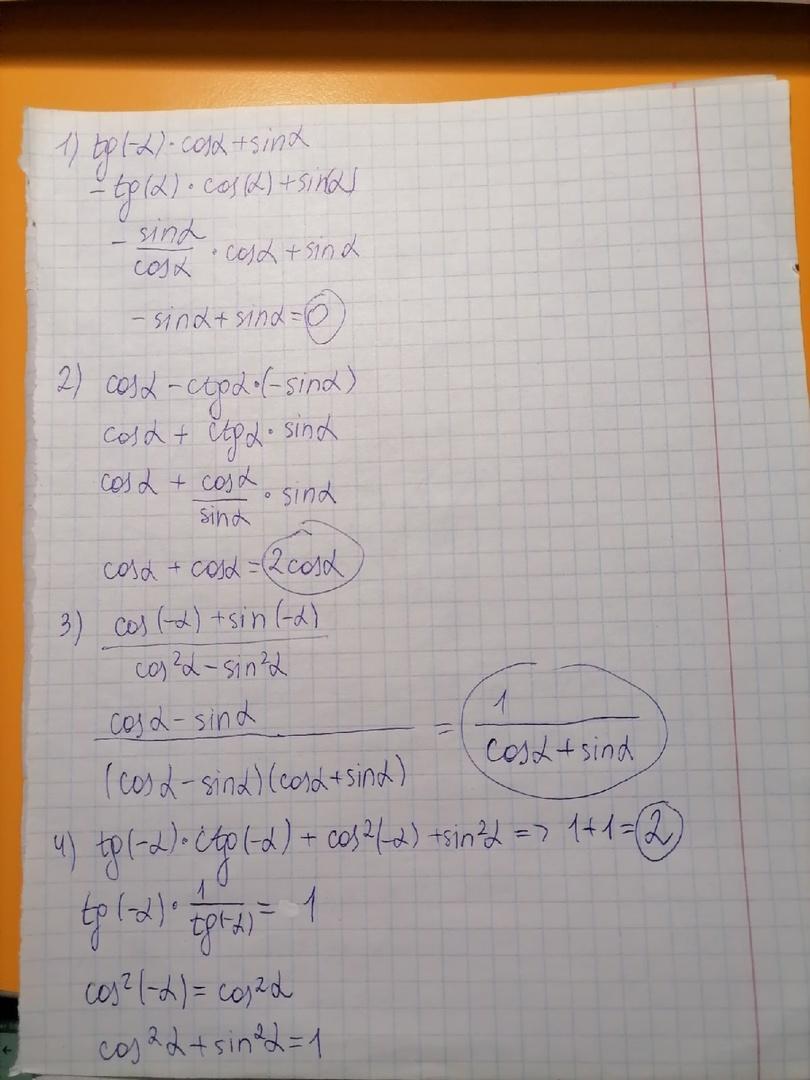 1) tg(-α)·cosα+sinα
-tg(α)·cos(α)+sin(α)
-sinα/cosα·cosα+sinα
-sinα+sinα=0
2) cosα-ctgα·(-sinα)
cosα+ctgα·sinα
cosα+cosα/sinα·sinα
cosα+cosα=2cosα
3) cos(-α)+sin(-α)
cos²α-sin²α
cosα-sinα
(cosα-sinα)(cosα+sinα)
=
1
cosα+sinα
4) tg(-α)·ctg(-α)+cos²(-α)+sin²α=>1+1=2
tg(-α)·1/tg(-α)=1
cos²(-α)=cos²α
cos²α+sin²α=1